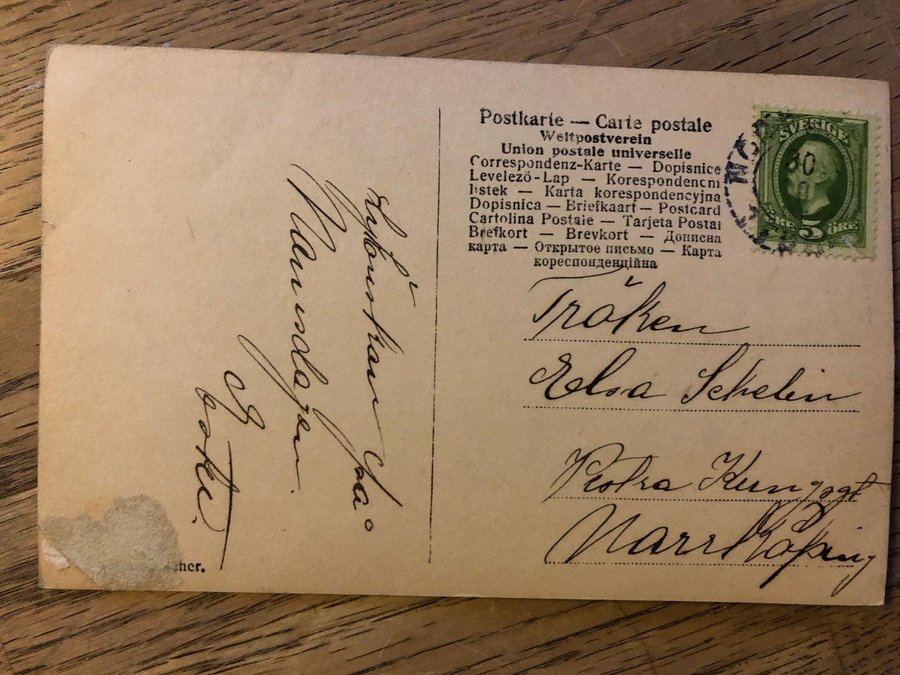 Postkarte — Carte postale
Weltpostverein
Union postale universelle
Correspondenz-Karte — Dopisnice
Levelezö-Lap — Korespondencni
listek — Karta korespondencyjna
Dopisnica — Briefkaart — Postcard
Cartolina Postale — Tarjeta Postal
Brefkort — Brevkort — Дописна
карта — Открытое письмо — Карта
кореспонденційна
SVERIGE
5 ÖRE
Fröken
Elsa Schelin
Norrköping
Lyckönskan på
Namnsdagen
cher.